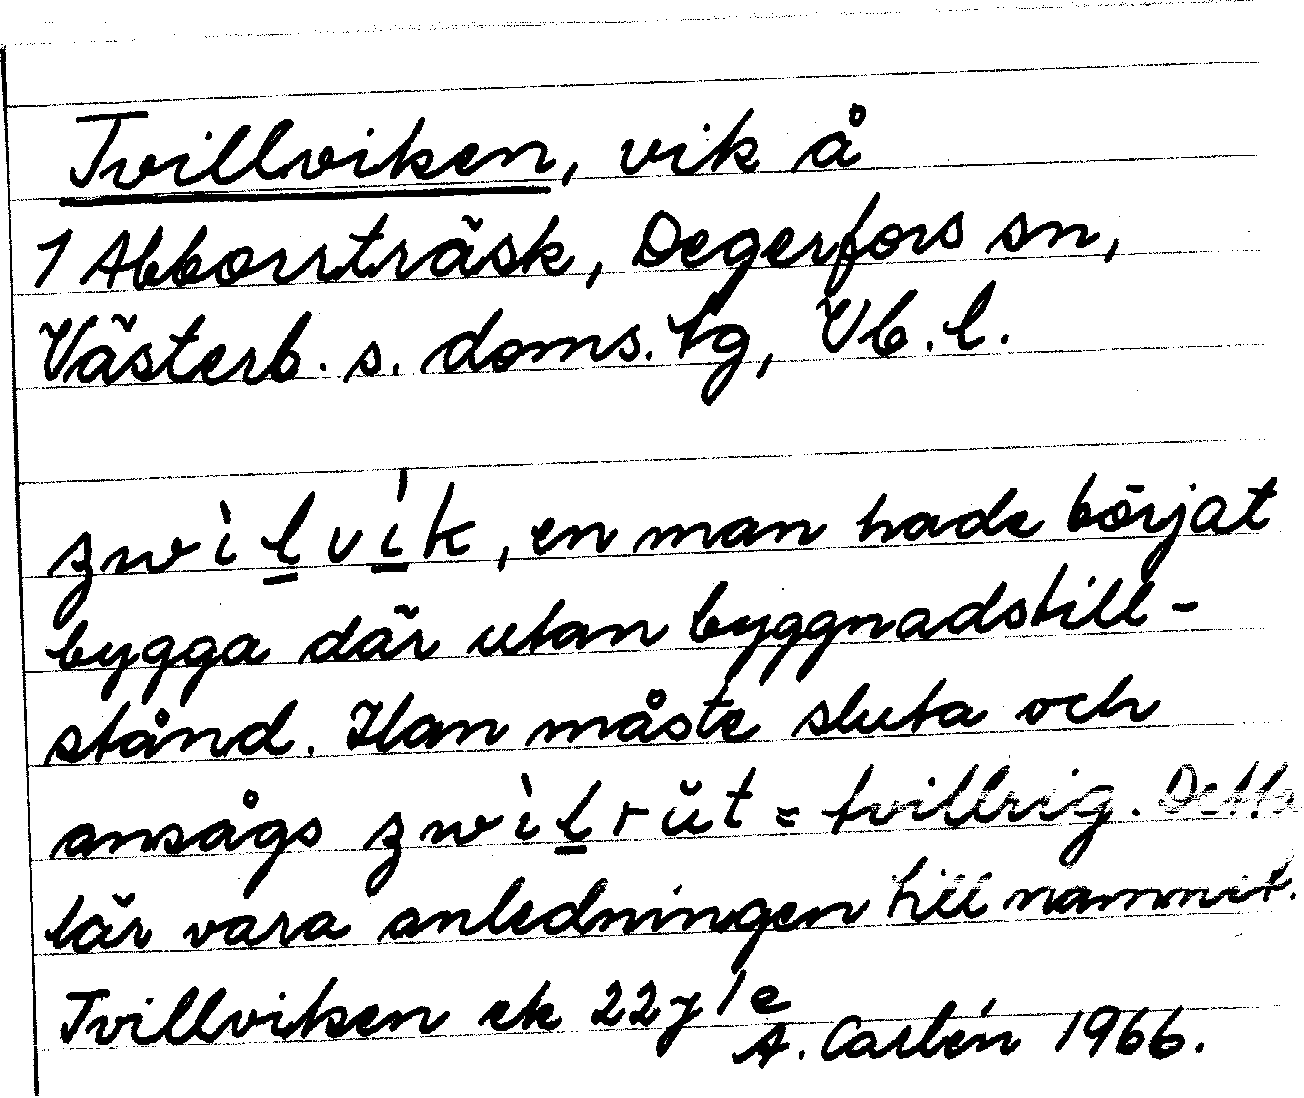 Tvillviken, vik å
1 Abborrträsk, Degerfors sn,
Västerb. s. doms. tg, Vb. l.
zwìlvík, en man hade börjat
bygga där utan byggnadstill-
stånd. Han måste sluta och
ansågs zwìlrŭt = tvillrig. Detta
lär vara anledningen till namnet.
Tvillviken ek 22 j 1 e
A. Carlén 1966.